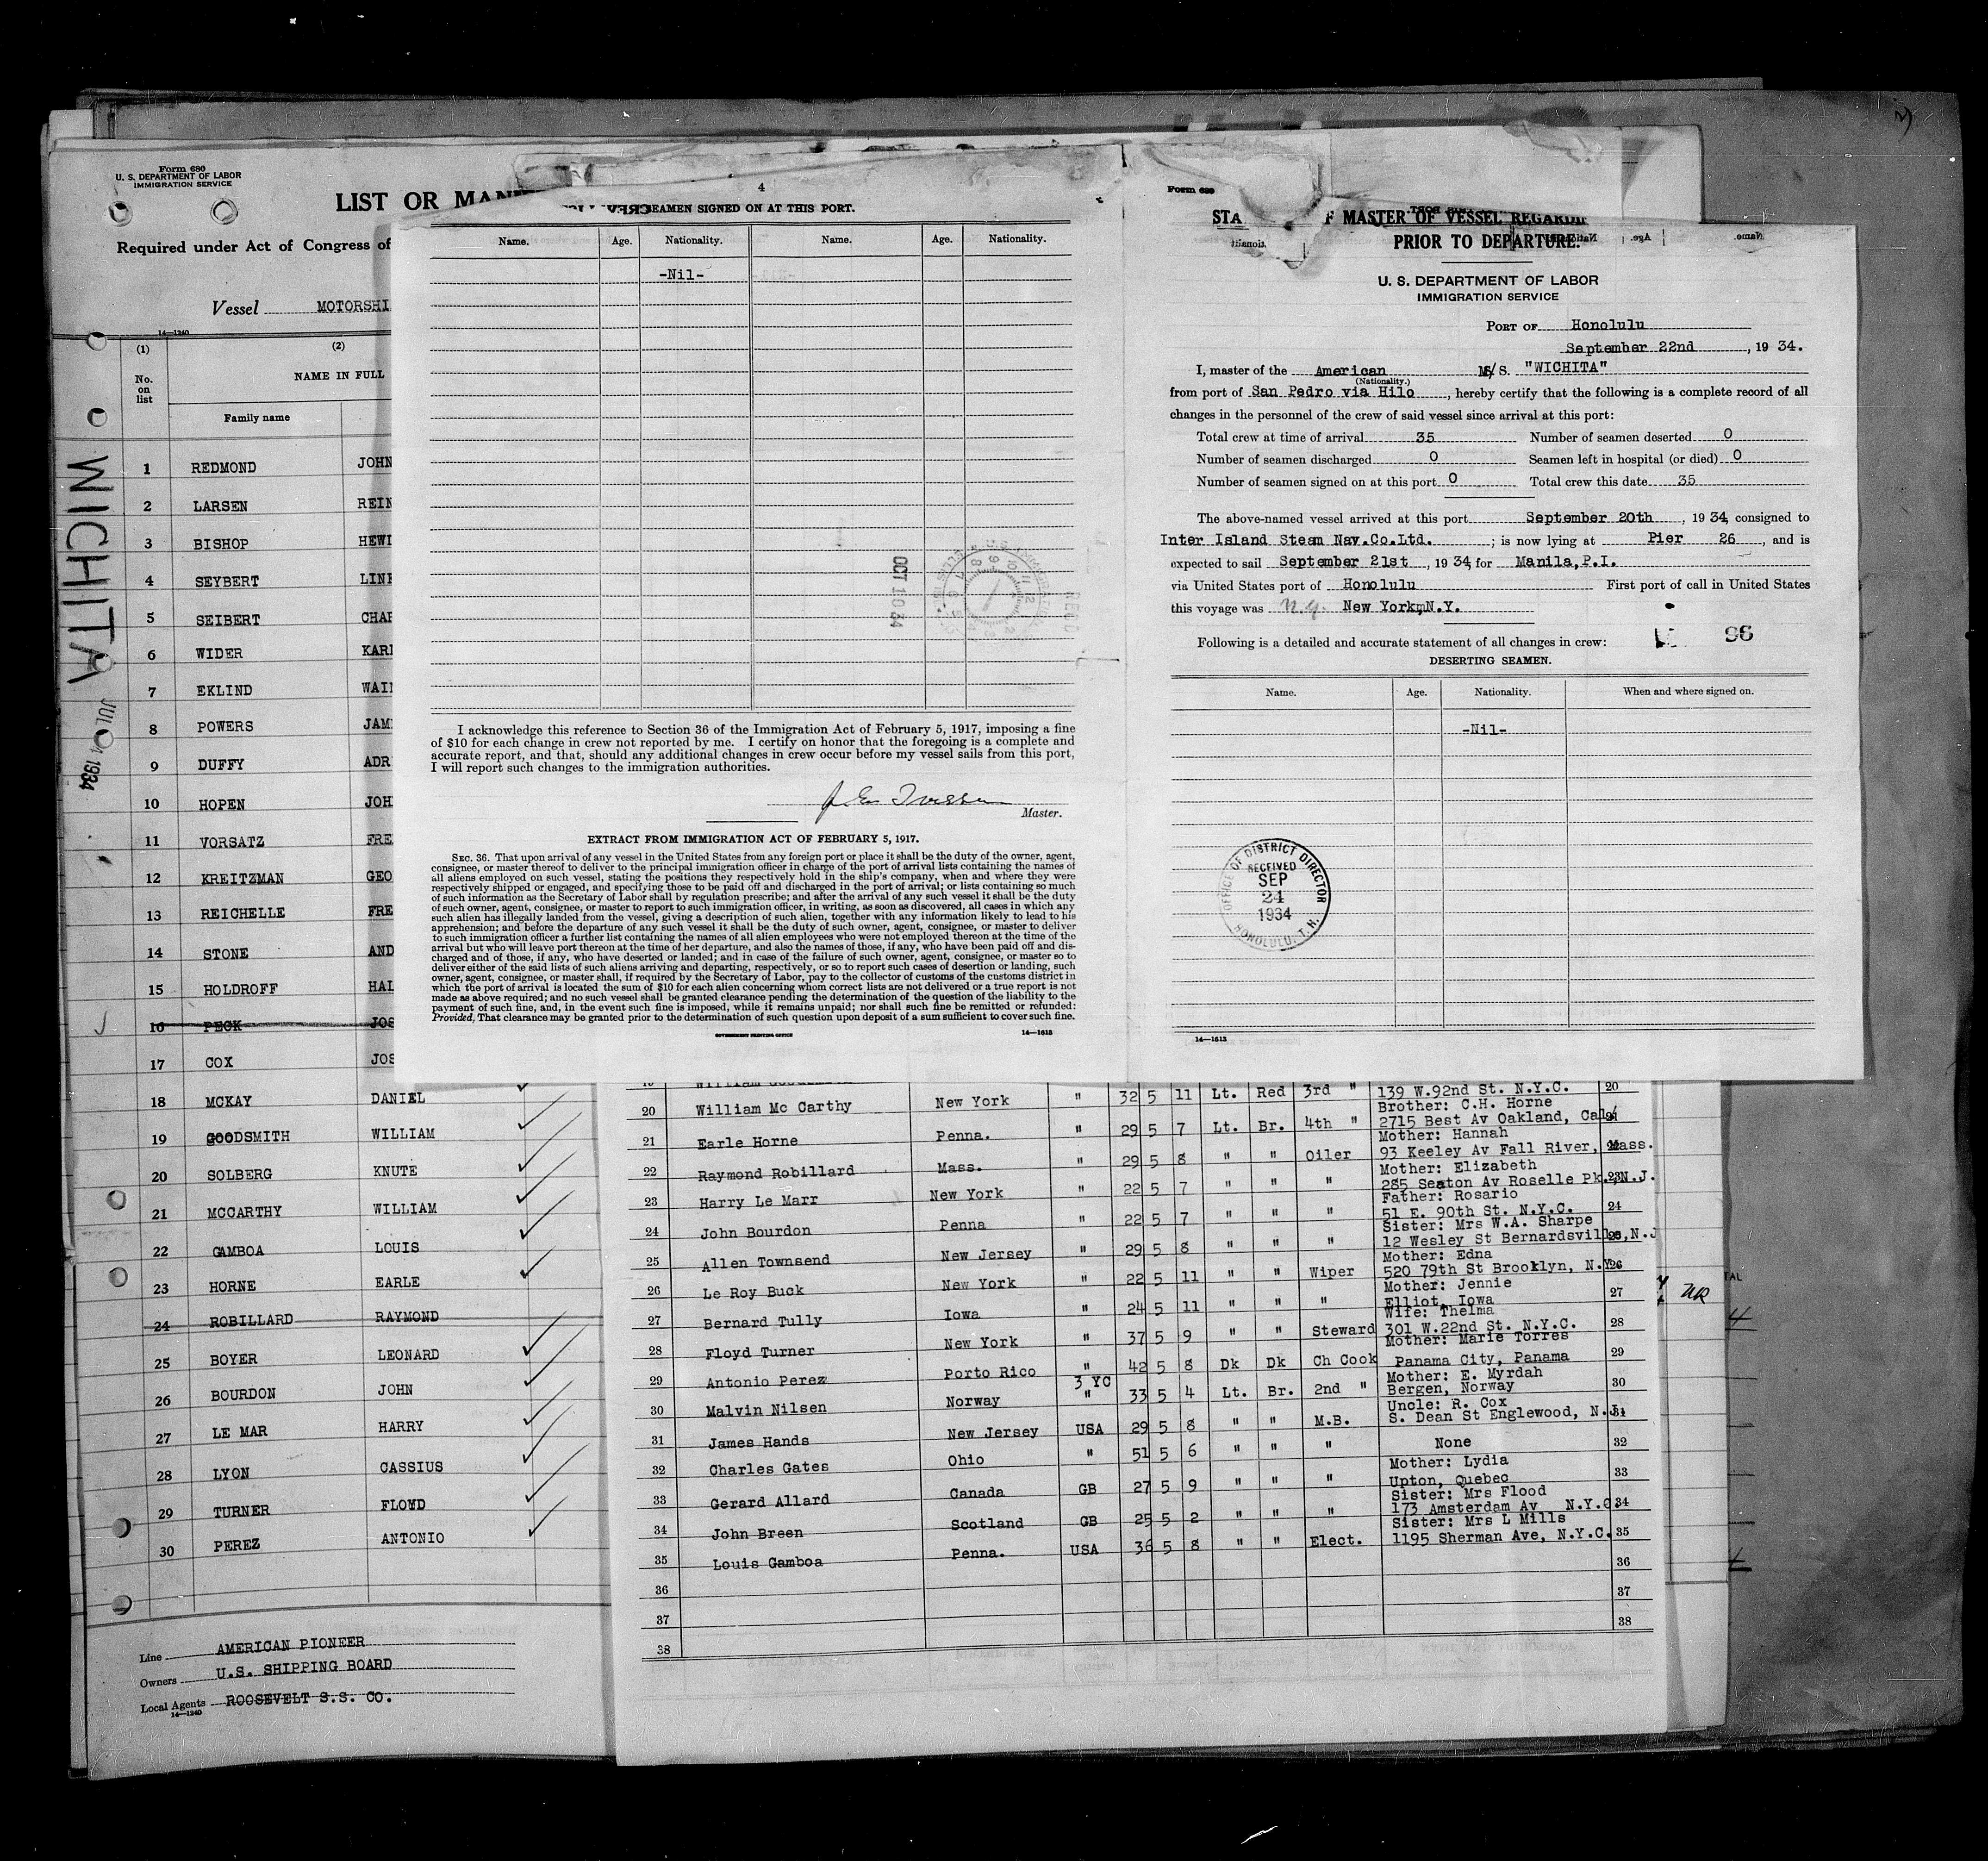 Form 680
U. S. DEPARTMENT OF LABOR
IMMIGRATION SERVICE
LIST OR MAN
Required under Act of Congress of
Vessel MOTORSHI
14—1240
(1) (2)
No. on list
NAME IN FULL
Family name
WICHITA
JUL 1934
1 REDMOND JOHN
2 LARSEN REIN
3 BISHOP HEWI
4 SEYBERT LINK
5 SEIBERT CHAR
6 WIDER KARL
7 EKLIND WAI
8 POWERS JAM
9 DUFFY ADR
10 HOPEN JOH
11 VORSATZ FRE
12 KREITZMAN GEO
13 REICHELLE FRE
14 STONE AND
15 HOLDROFF HAL
16 PECK JOS
17 COX JOS
18 MCKAY DANIEL
19 GOODSMITH WILLIAM
20 SOLBERG KNUTE
21 MCCARTHY WILLIAM
22 GAMBOA LOUIS
23 HORNE EARLE
24 ROBILLARD RAYMOND
25 BOYER LEONARD
26 BOURDON JOHN
27 LE MAR HARRY
28 LYON CASSIUS
29 TURNER FLOYD
30 PEREZ ANTONIO
Line AMERICAN PIONEER
Owners U.S. SHIPPING BOARD
Local Agents ROOSEVELT S.S. CO.
14—1240
4
SEAMEN SIGNED ON AT THIS PORT.
Name. Age. Nationality. Name. Age. Nationality.
-Nil-
OCT 10 34
I acknowledge this reference to Section 36 of the Immigration Act of February 5, 1917, imposing a fine
of $10 for each change in crew not reported by me. I certify on honor that the foregoing is a complete and
accurate report, and that, should any additional changes in crew occur before my vessel sails from this port,
I will report such changes to the immigration authorities.
Master.
EXTRACT FROM IMMIGRATION ACT OF FEBRUARY 5, 1917.
SEC. 36. That upon arrival of any vessel in the United States from any foreign port or place it shall be the duty of the owner, agent,
consignee, or master thereof to deliver to the principal immigration officer in charge of the port of arrival lists containing the names of
all aliens employed on such vessel, stating the positions they respectively hold in the ship's company, when and where they were
respectively shipped or engaged, and specifying those to be paid off and discharged in the port of arrival; or lists containing so much
of such information as the Secretary of Labor shall by regulation prescribe; and after the arrival of any such vessel it shall be the duty
of such owner, agent, consignee, or master to report to such immigration officer, in writing, as soon as discovered, all cases in which any
such alien has illegally landed from the vessel, giving a description of such alien, together with any information likely to lead to his
apprehension; and before the departure of any such vessel it shall be the duty of such owner, agent, consignee, or master to deliver
to such immigration officer a further list containing the names of all alien employees who were not employed thereon at the time of the
arrival but who will leave port thereon at the time of her departure, and also the names of those, if any, who have been paid off and dis-
charged and of those, if any, who have deserted or landed; and in case of the failure of such owner, agent, consignee, or master so to
deliver either of the said lists of such aliens arriving and departing, respectively, or so to report such cases of desertion or landing, such
owner, agent, consignee, or master shall, if required by the Secretary of Labor, pay to the collector of customs of the customs district in
which the port of arrival is located the sum of $10 for each alien concerning whom correct lists are not delivered or a true report is not
made as above required; and no such vessel shall be granted clearance pending the determination of the question of the liability to the
payment of such fine, and, in the event such fine is imposed, while it remains unpaid; nor shall such fine be remitted or refunded:
Provided, That clearance may be granted prior to the determination of such question upon deposit of a sum sufficient to cover such fine.
GOVERNMENT PRINTING OFFICE 14—1613
Form 689
STA F MASTER OF VESSEL REGARDI
PRIOR TO DEPARTURE.
U. S. DEPARTMENT OF LABOR
IMMIGRATION SERVICE
PORT OF Honolulu
September 22nd, 1934.
I, master of the American M/S. "WICHITA"
(Nationality.)
from port of San Pedro via Hilo, hereby certify that the following is a complete record of all
changes in the personnel of the crew of said vessel since arrival at this port:
Total crew at time of arrival 35 Number of seamen deserted 0
Number of seamen discharged 0 Seamen left in hospital (or died) 0
Number of seamen signed on at this port 0 Total crew this date 35
The above-named vessel arrived at this port September 20th, 1934, consigned to
Inter Island Steam Nav.Co.Ltd.; is now lying at Pier 26, and is
expected to sail September 21st, 1934, for Manila,P.I.
via United States port of Honolulu First port of call in United States
this voyage was N.Y. New York,N.Y.
Following is a detailed and accurate statement of all changes in crew: 96
DESERTING SEAMEN.
Name. Age. Nationality. When and where signed on.
-Nil-
OFFICE OF DISTRICT DIRECTOR
RECEIVED
SEP
24
1934
HONOLULU, T. H.
14—1613
139 W.92nd St. N.Y.C. 20
20 William Mc Carthy New York " 32 5 11 Lt. Red 3rd "
Brother: C.H. Horne
21 Earle Horne Penna. " 29 5 7 Lt. Br. 4th " 2715 Best Av Oakland, Cal. 21
Mother: Hannah
22 Raymond Robillard Mass. " 29 5 8 " " Oiler 93 Keeley Av Fall River, Mass. 22
Mother: Elizabeth
23 Harry Le Marr New York " 22 5 7 " " " 285 Seaton Av Roselle Pk. N.J. 23
Father: Rosario
24 John Bourdon Penna " 22 5 7 " " " 51 E. 90th St. N.Y.C. 24
Sister: Mrs W.A. Sharpe
25 Allen Townsend New Jersey " 29 5 8 " " " 12 Wesley St Bernardsville,N.J 25
Mother: Edna
26 Le Roy Buck New York " 22 5 11 " " Wiper 520 79th St Brooklyn, N.Y. 26
Mother: Jennie
27 Bernard Tully Iowa " 24 5 11 " " " Elliot, Iowa 27
Wife: Thelma
28 Floyd Turner New York " 37 5 9 " " Steward 301 W.22nd St. N.Y.C. 28
Mother: Marie Torres
29 Antonio Perez Porto Rico " 42 5 8 Dk Dk Ch Cook Panama City, Panama 29
Mother: E. Myrdah
30 Malvin Nilsen Norway 3 YC " 33 5 4 Lt. Br. 2nd " Bergen, Norway 30
Uncle: R. Cox
31 James Hands New Jersey USA 29 5 8 " " M.B. S. Dean St Englewood, N.J. 31
32 Charles Gates Ohio " 51 5 6 " " " None 32
Mother: Lydia
33 Gerard Allard Canada GB 27 5 9 " " " Upton, Quebec 33
Sister: Mrs Flood
34 John Breen Scotland GB 25 5 2 " " " 173 Amsterdam Av N.Y.C. 34
Sister: Mrs L Mills
35 Louis Gamboa Penna. USA 36 5 8 " " Elect. 1195 Sherman Ave, N.Y.C. 35
36 36
37 37
38 38